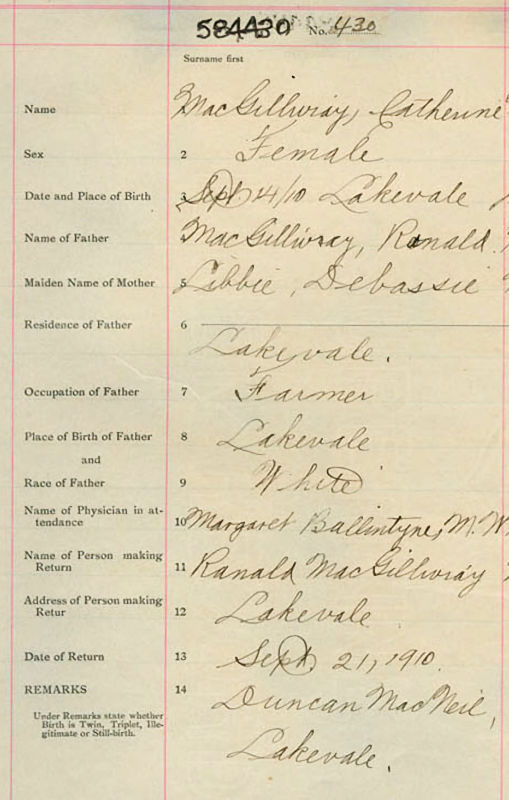 584430 No. 430
Surname first
Name MacGillivray, Catherine
Sex 2 Female
Date and Place of Birth 3 Sept 14/10 Lakevale
Name of Father MacGillivray, Ronald
Maiden Name of Mother 5 Libbie, Debassie
Residence of Father 6
Lakevale.
Occupation of Father 7 Farmer
Place of Birth of Father 8 Lakevale
and
Race of Father 9 White
Name of Physician in at-
tendance 10 Margaret Ballintyne, M. W.
Name of Person making
Return 11 Ranald MacGillivray
Address of Person making
Retur 12 Lakevale
Date of Return 13 Sept. 21, 1910.
REMARKS 14 Duncan MacNeil,
Under Remarks state whether
Birth is Twin, Triplet, Ille-
gitimate or Still-birth.
Lakevale.